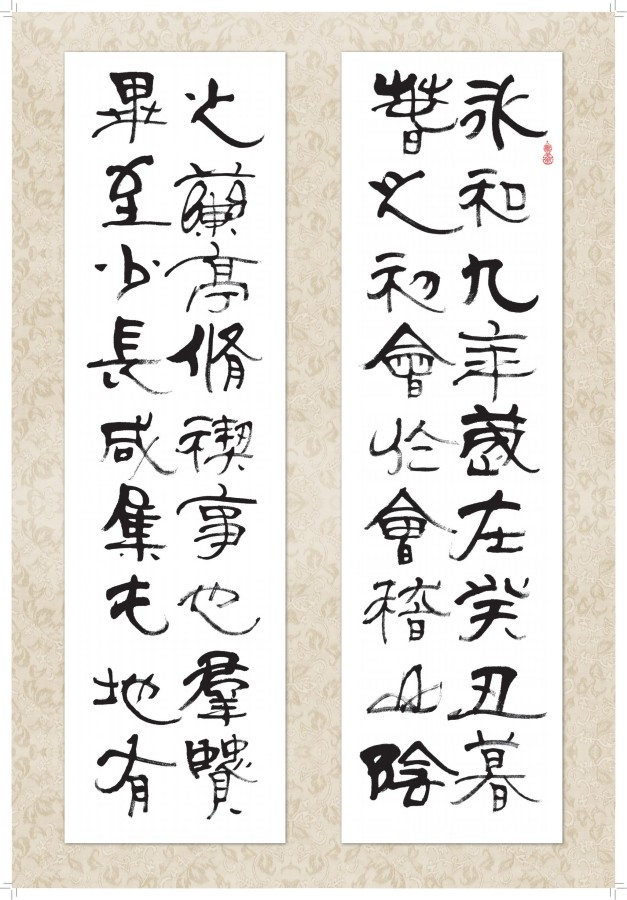 永和九年歲在癸丑暮
春之初會於會稽山陰
之蘭亭脩禊事也羣賢
畢至少長咸集此地有